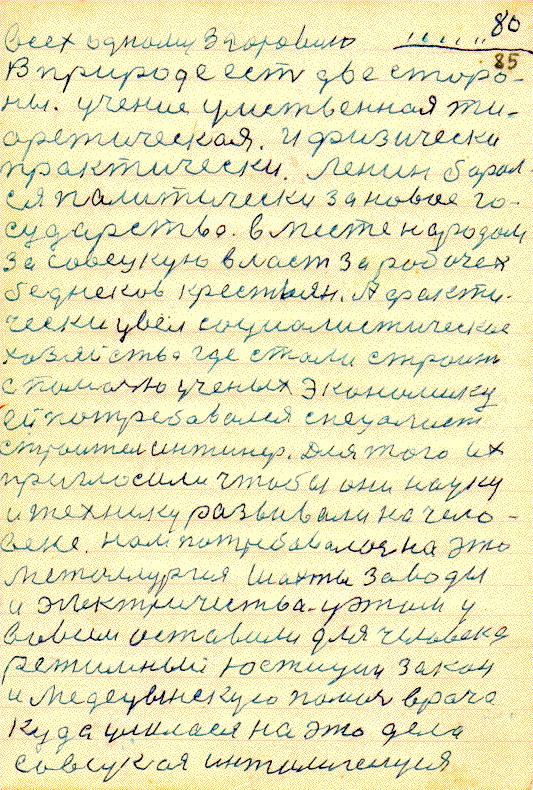 80
85
всех одному Здоровию
В природе ест две сторо-
ны. учение умственная ти-
аретическая. И физически
практически. Ленин борол-
ся палитически за новое го-
сударства. вместе народам
за совецкую власт за рабочех
беднеков крестьян. А факти-
чески увёл социалистическое
хозяйства где стали строить
с помочю ученых экономику
ей потребовался специалист
строител интинер. Для того их
пригласили чтобы они науку
и технику развивали на чело-
веке. нам потребовался на это
металлургия шахты заводы
и электричества. уэтом у
вовсем оставили для человека
ретимный юстиции закон
и медецынскую помоч врача
куда училася на это дела
совецкая интилигенция